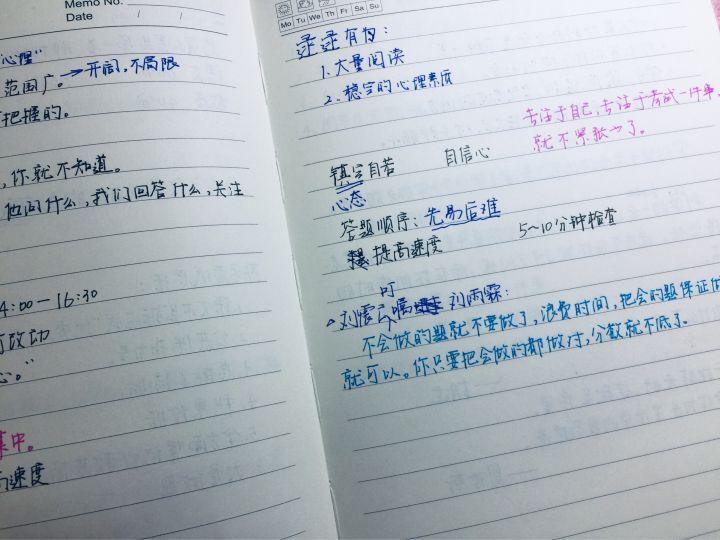 Memo No.
Date / /
心理"
范围广。→开阔，不局限
把握的。
，你就不知道。
他问什么，我们回答什么，关注
4:00—16:30
改动
心。"
集中。
高速度
Mo Tu We Th Fr Sa Su
1.大量阅读
2.稳定的心理素质
专注于自己，专注于考试一件事，
就不紧张了。
镇定自若 自信心
心态
答题顺序：先易后难
5~10分钟检查
提高速度
叮
刘震云嘱 刘雨霖：
不会做的题就不要做了，浪费时间，把会的题保证做
就可以。你只要把会做的都做对，分数就不低了。